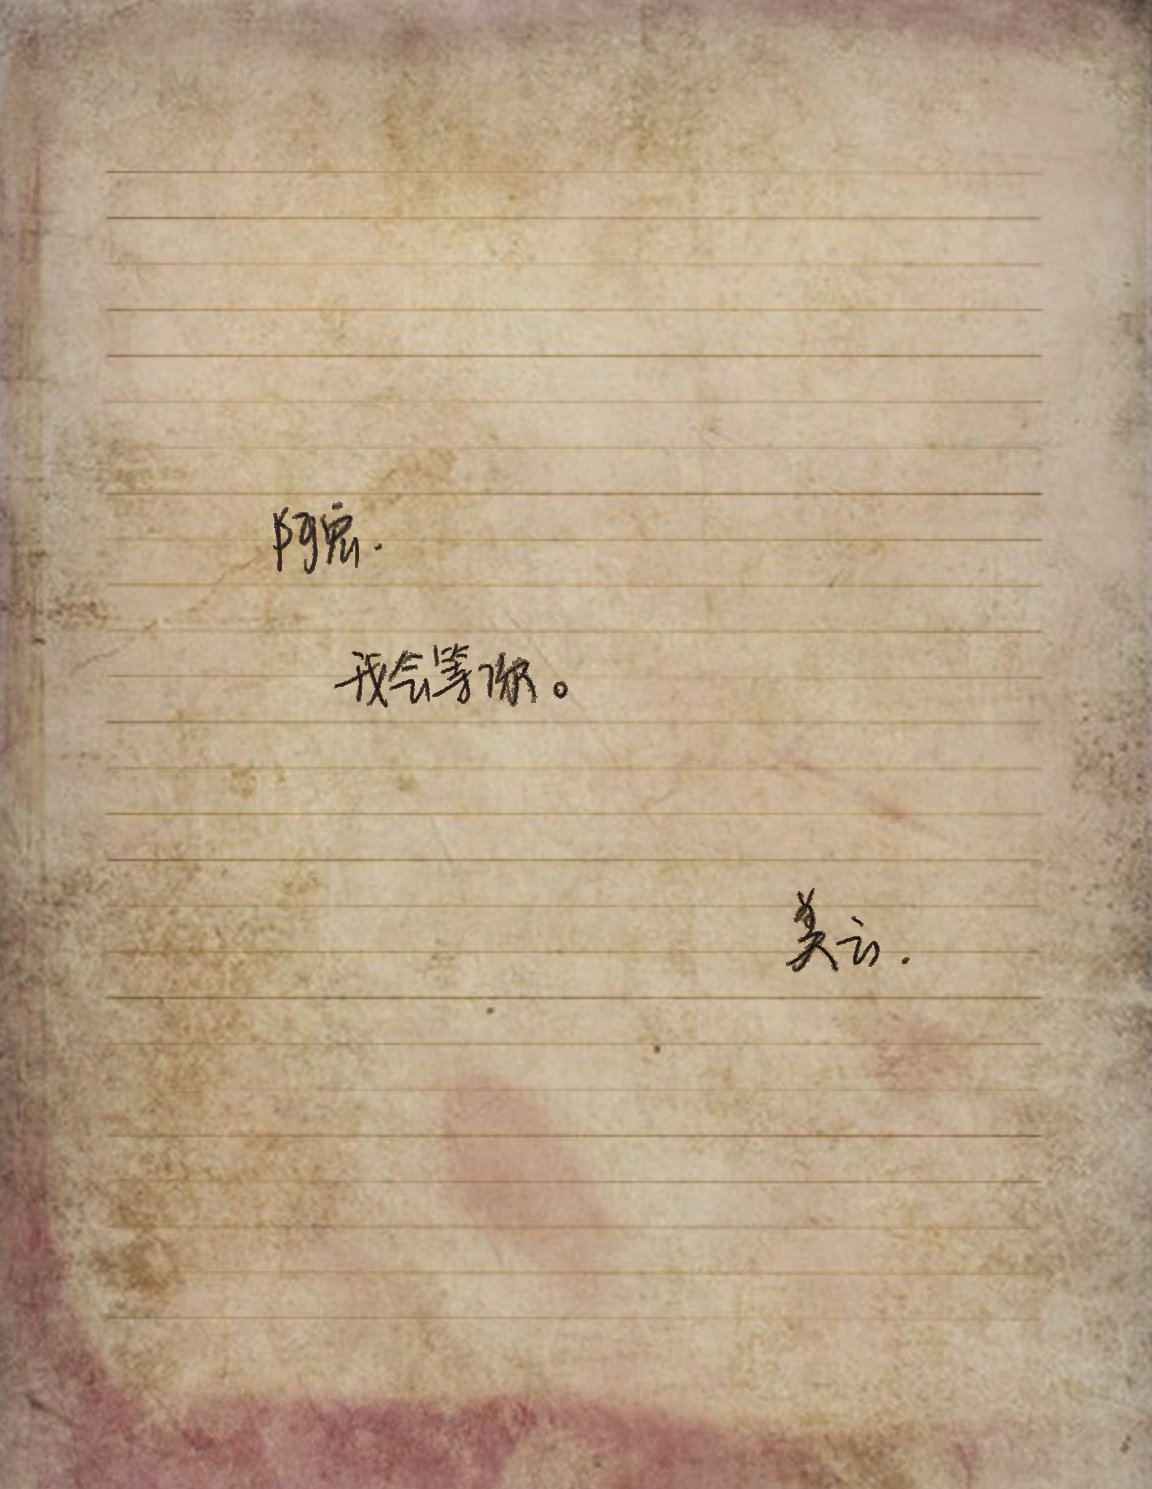 阿宏.
我会等你。
美云.